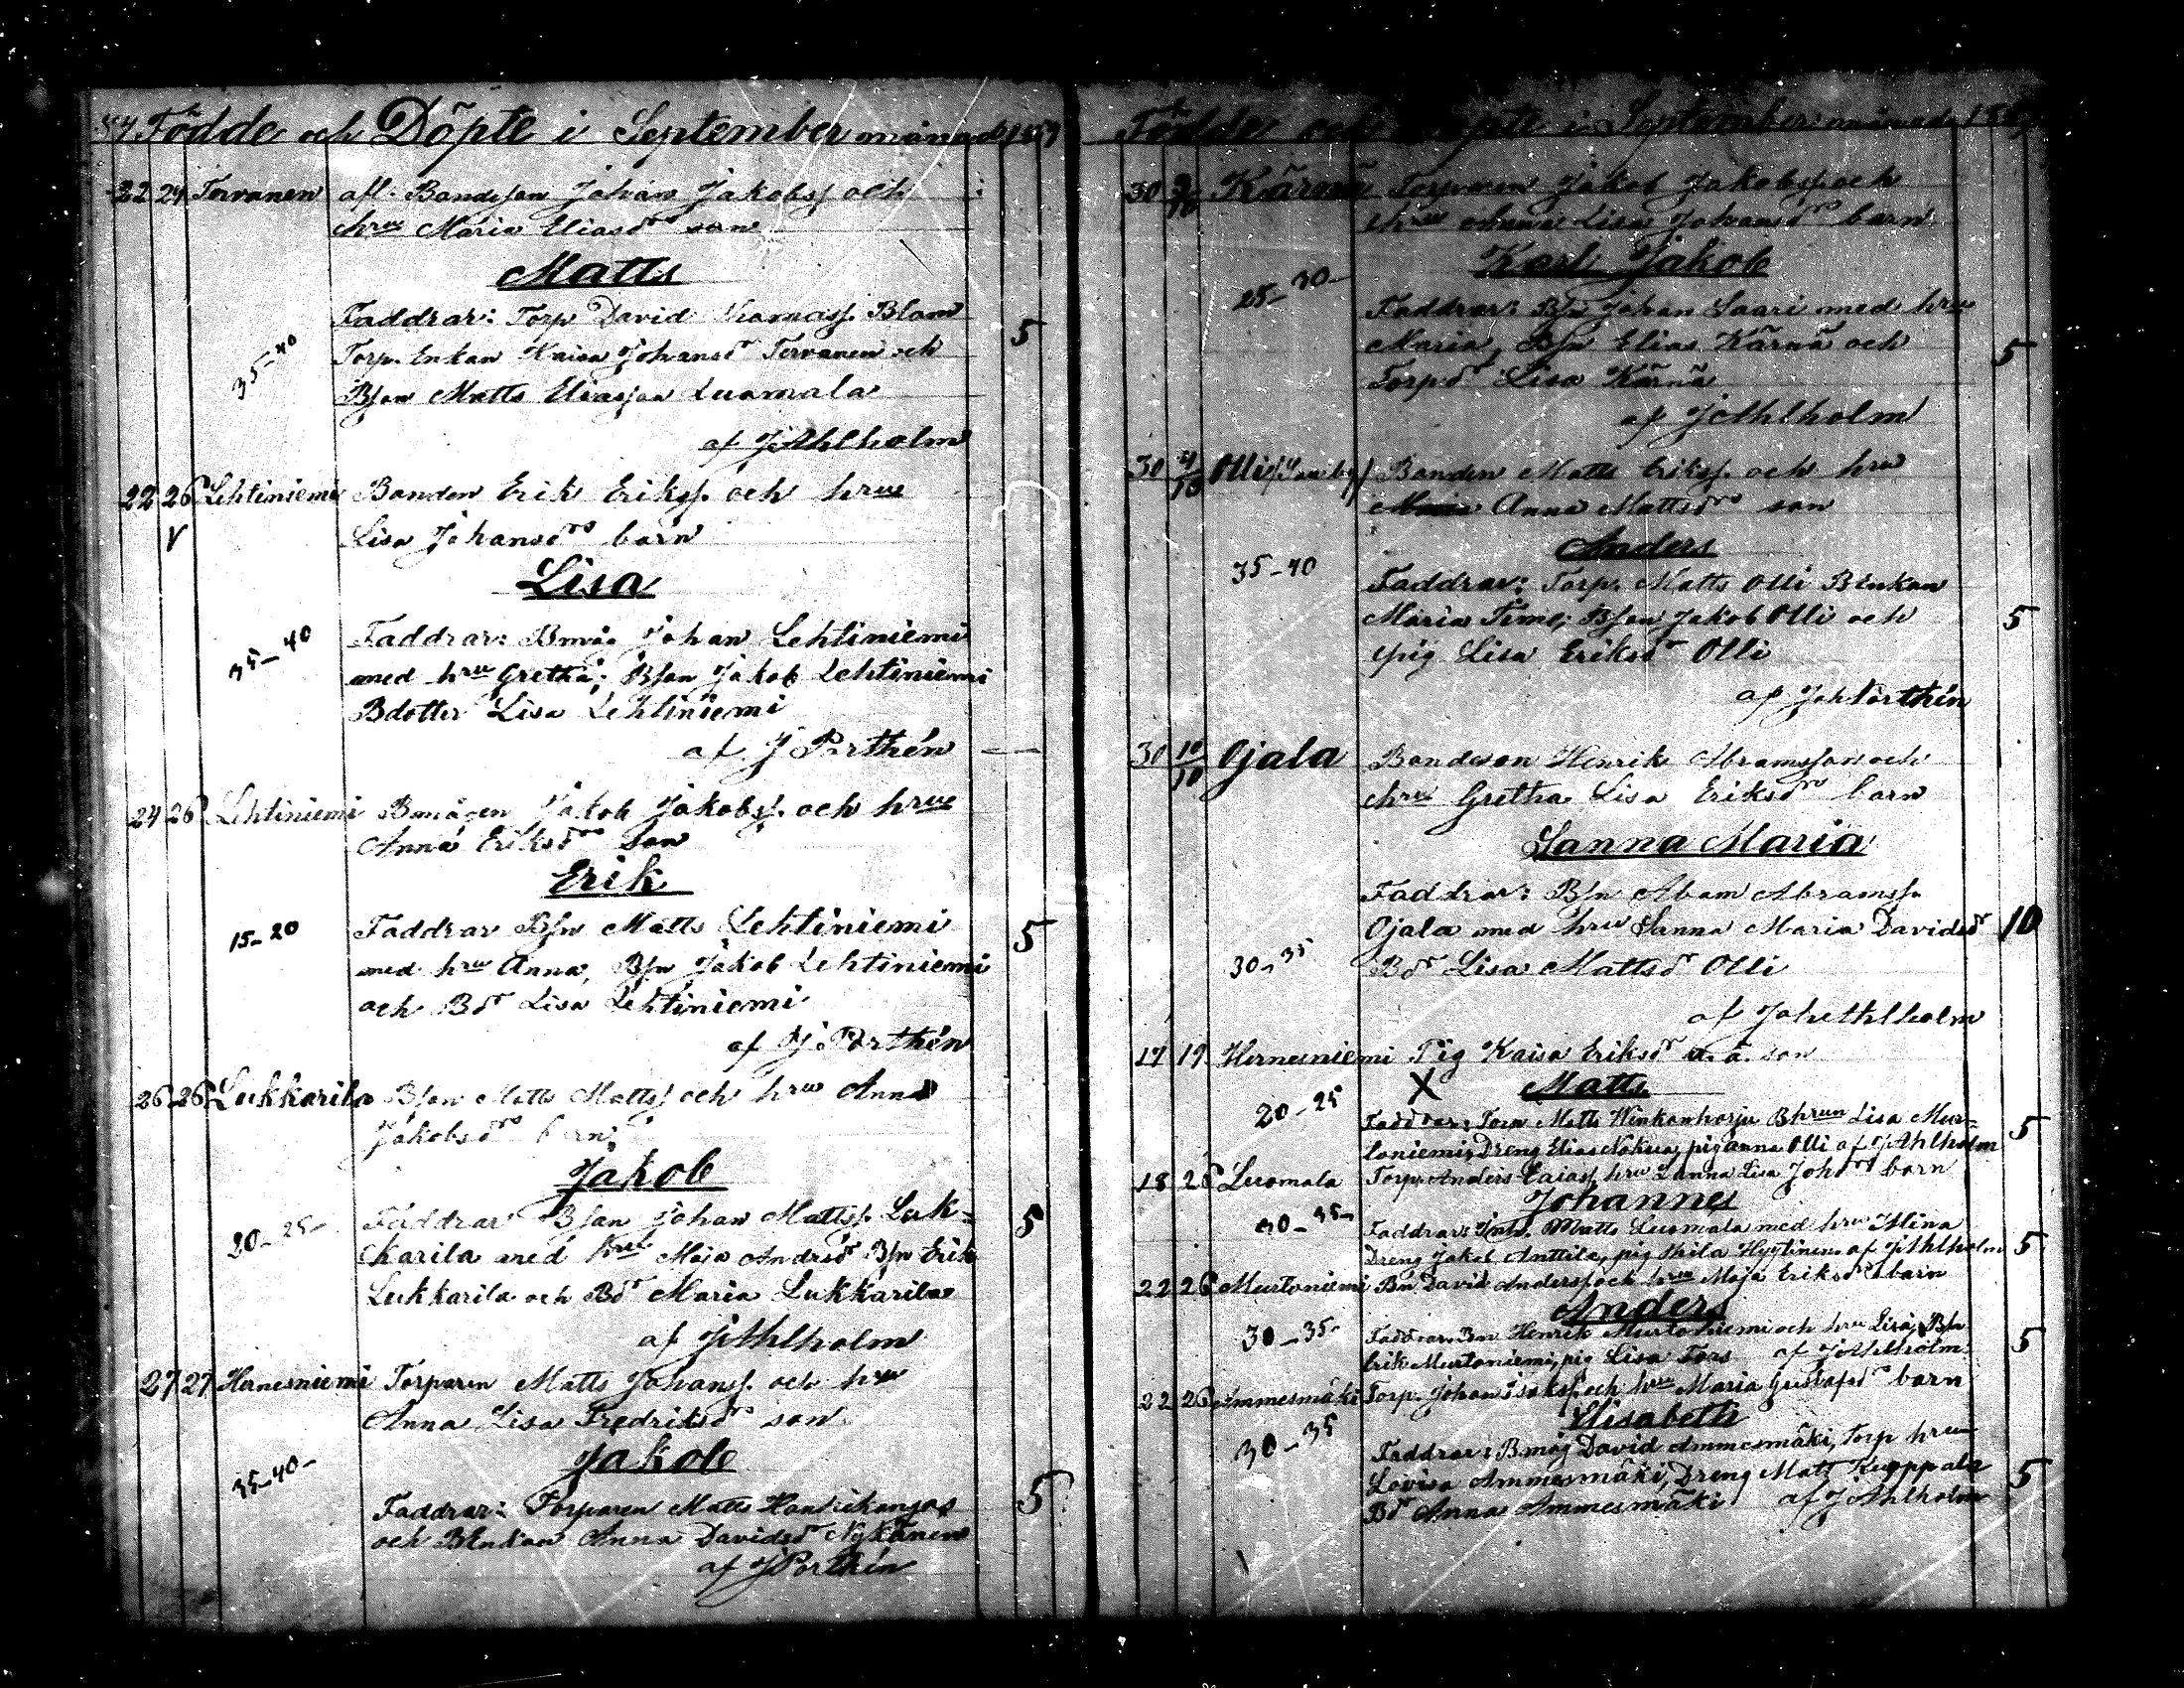 Födde och Döpte i September månad 1857
22 24 Tervanen afl. Bondeson Johan Jakobss. och
hru Maria Eliasdrs son
Matts
Faddrar: Torp David Blom
35-40 Torp. Enkan Kaisa Johansdr Tervanen och 5
Bson Matts Eliasson Luomala
af J Ahlholm
22 26 Lehtiniemi Bonden Erik Erikss. och hru
V Lisa Johansdrs barn
Lisa
Faddrar: Bmåg Johan Lehtiniemi
35-40 med hru Gretha; Bson Jakob Lehtiniemi
Bdotter Lisa Lehtiniemi
af J Porthén —
24 26 Lehtiniemi Bmågen Jakob Jakobss. och hrus
Anna Eriksdrs son
Erik
15-20 Faddrar Bsn Matts Lehtiniemi 5
med hru Anna, Bsn Jakob Lehtiniemi
och Bdr Lisa Lehtiniemi
af J Porthén
26 26 Lukkarila Bson Matts Mattss och hru Anna
Jakobsdrs barn
Jakob
20-25- Faddrar Bson Johan Mattss. Luk= 5
karila med hru Maja Andrsdr Bsn Erik
Lukkarila och Bdr Maria Lukkarila
af J Ahlholm
27 27 Hernesniemi Torparen Matts Johanss. och hru
Anna Lisa Fredriksdrs son
Jakob
35-40-
Faddrar: Torparen Matts Honkikangas 5
och BEnkan Anna Davidsdr Nykänen
af J Porthén
Födde och Döpte i September månad 1857
30 /10 Kärnä Torparen Jakob Jakobss. och
hru Lisa Johansdrs barn
Karl Jakob
25-30- Faddrar: Bsn Johan Saari med hru
Maria, Bsn Elias Kärnä och 5
Torpdr Lisa Kärnä
af J Ahlholm
30 4/10 Olli Bonden Matts Erikss. och hru
Maria Anna Mattsdrs son
Anders
35-40 Faddrar: Torp. Matts Olli BEnkan
Maria Timo; Bson Jakob Olli och 5
pig Lisa Eriksdr Olli
af Joh Porthén
30 10/10 Ojala Bondeson Henrik Abramsson och
hru Gretha Lisa Eriksdrs barn
Sanna Maria
Faddrar: Bsn Abam Abramss.
Ojala med hru Sanna Maria Davidsdr 10
30-35 Bdr Lisa Mattsdr Olli
af Joh Ahlholm
17 19 Hernesniemi Pig Kaisa Eriksdr o. ä. son
X Matts
20-25 Faddrar: Torp Matts Winkanharju Bhrun Lisa Mur= 5
toniemi, Dreng Elias Nokua, pig Anna Olli af J Ahlholm
18 26 Luomala Torp. Anders Esaiass hru Sanna Lisa Johdrs barn
Johannes
30-35- Faddrar: Matts Luomala med hru Albina
Dreng Jakob Anttila, pig Hyytinen af J Ahlholm 5
22 26 Murtoniemi Bn David Anderss och hru Maja Eriksdrs barn
Anders
30-35- Faddrar: Bn Henrik Murtoniemi och hru Lisa, Bsn 5
Erik Murtoniemi, pig Lisa Fors af J Ahlholm
22 26 Ammesmäki Torp. Johan Isakss och hru Maria Gustafsdrs barn
Elisabeth
30-35 Faddrar: Bmåg David Ammesmäki, Torp hrun
Lovisa Ammesmäki, Dreng Matt Kuoppala 5
Bdr Anna Ammesmäki af J Ahlholm